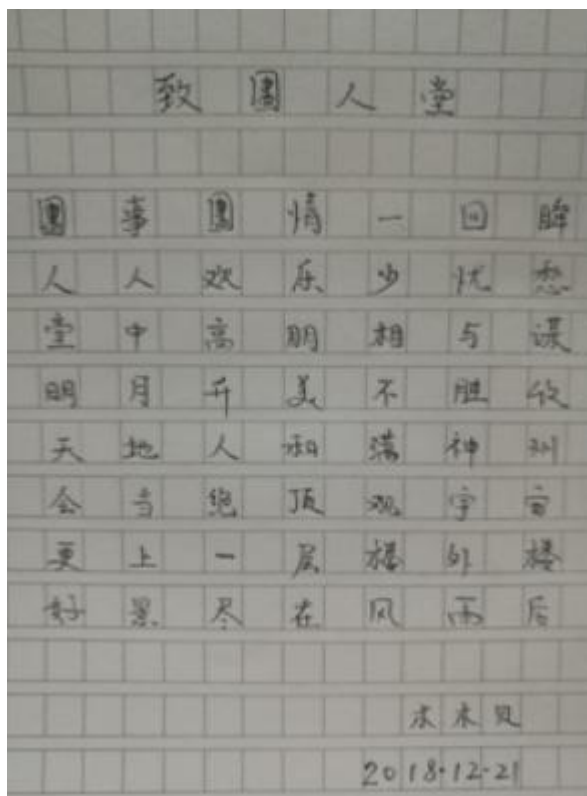 致圕人堂
圕事圕情一回眸
人人欢乐少忧愁
堂中高朋相与谋
明月升美不胜收
天地人和满神州
会当绝顶观宇宙
更上一层楼外楼
好景尽在风雨后
木
2018·12·21